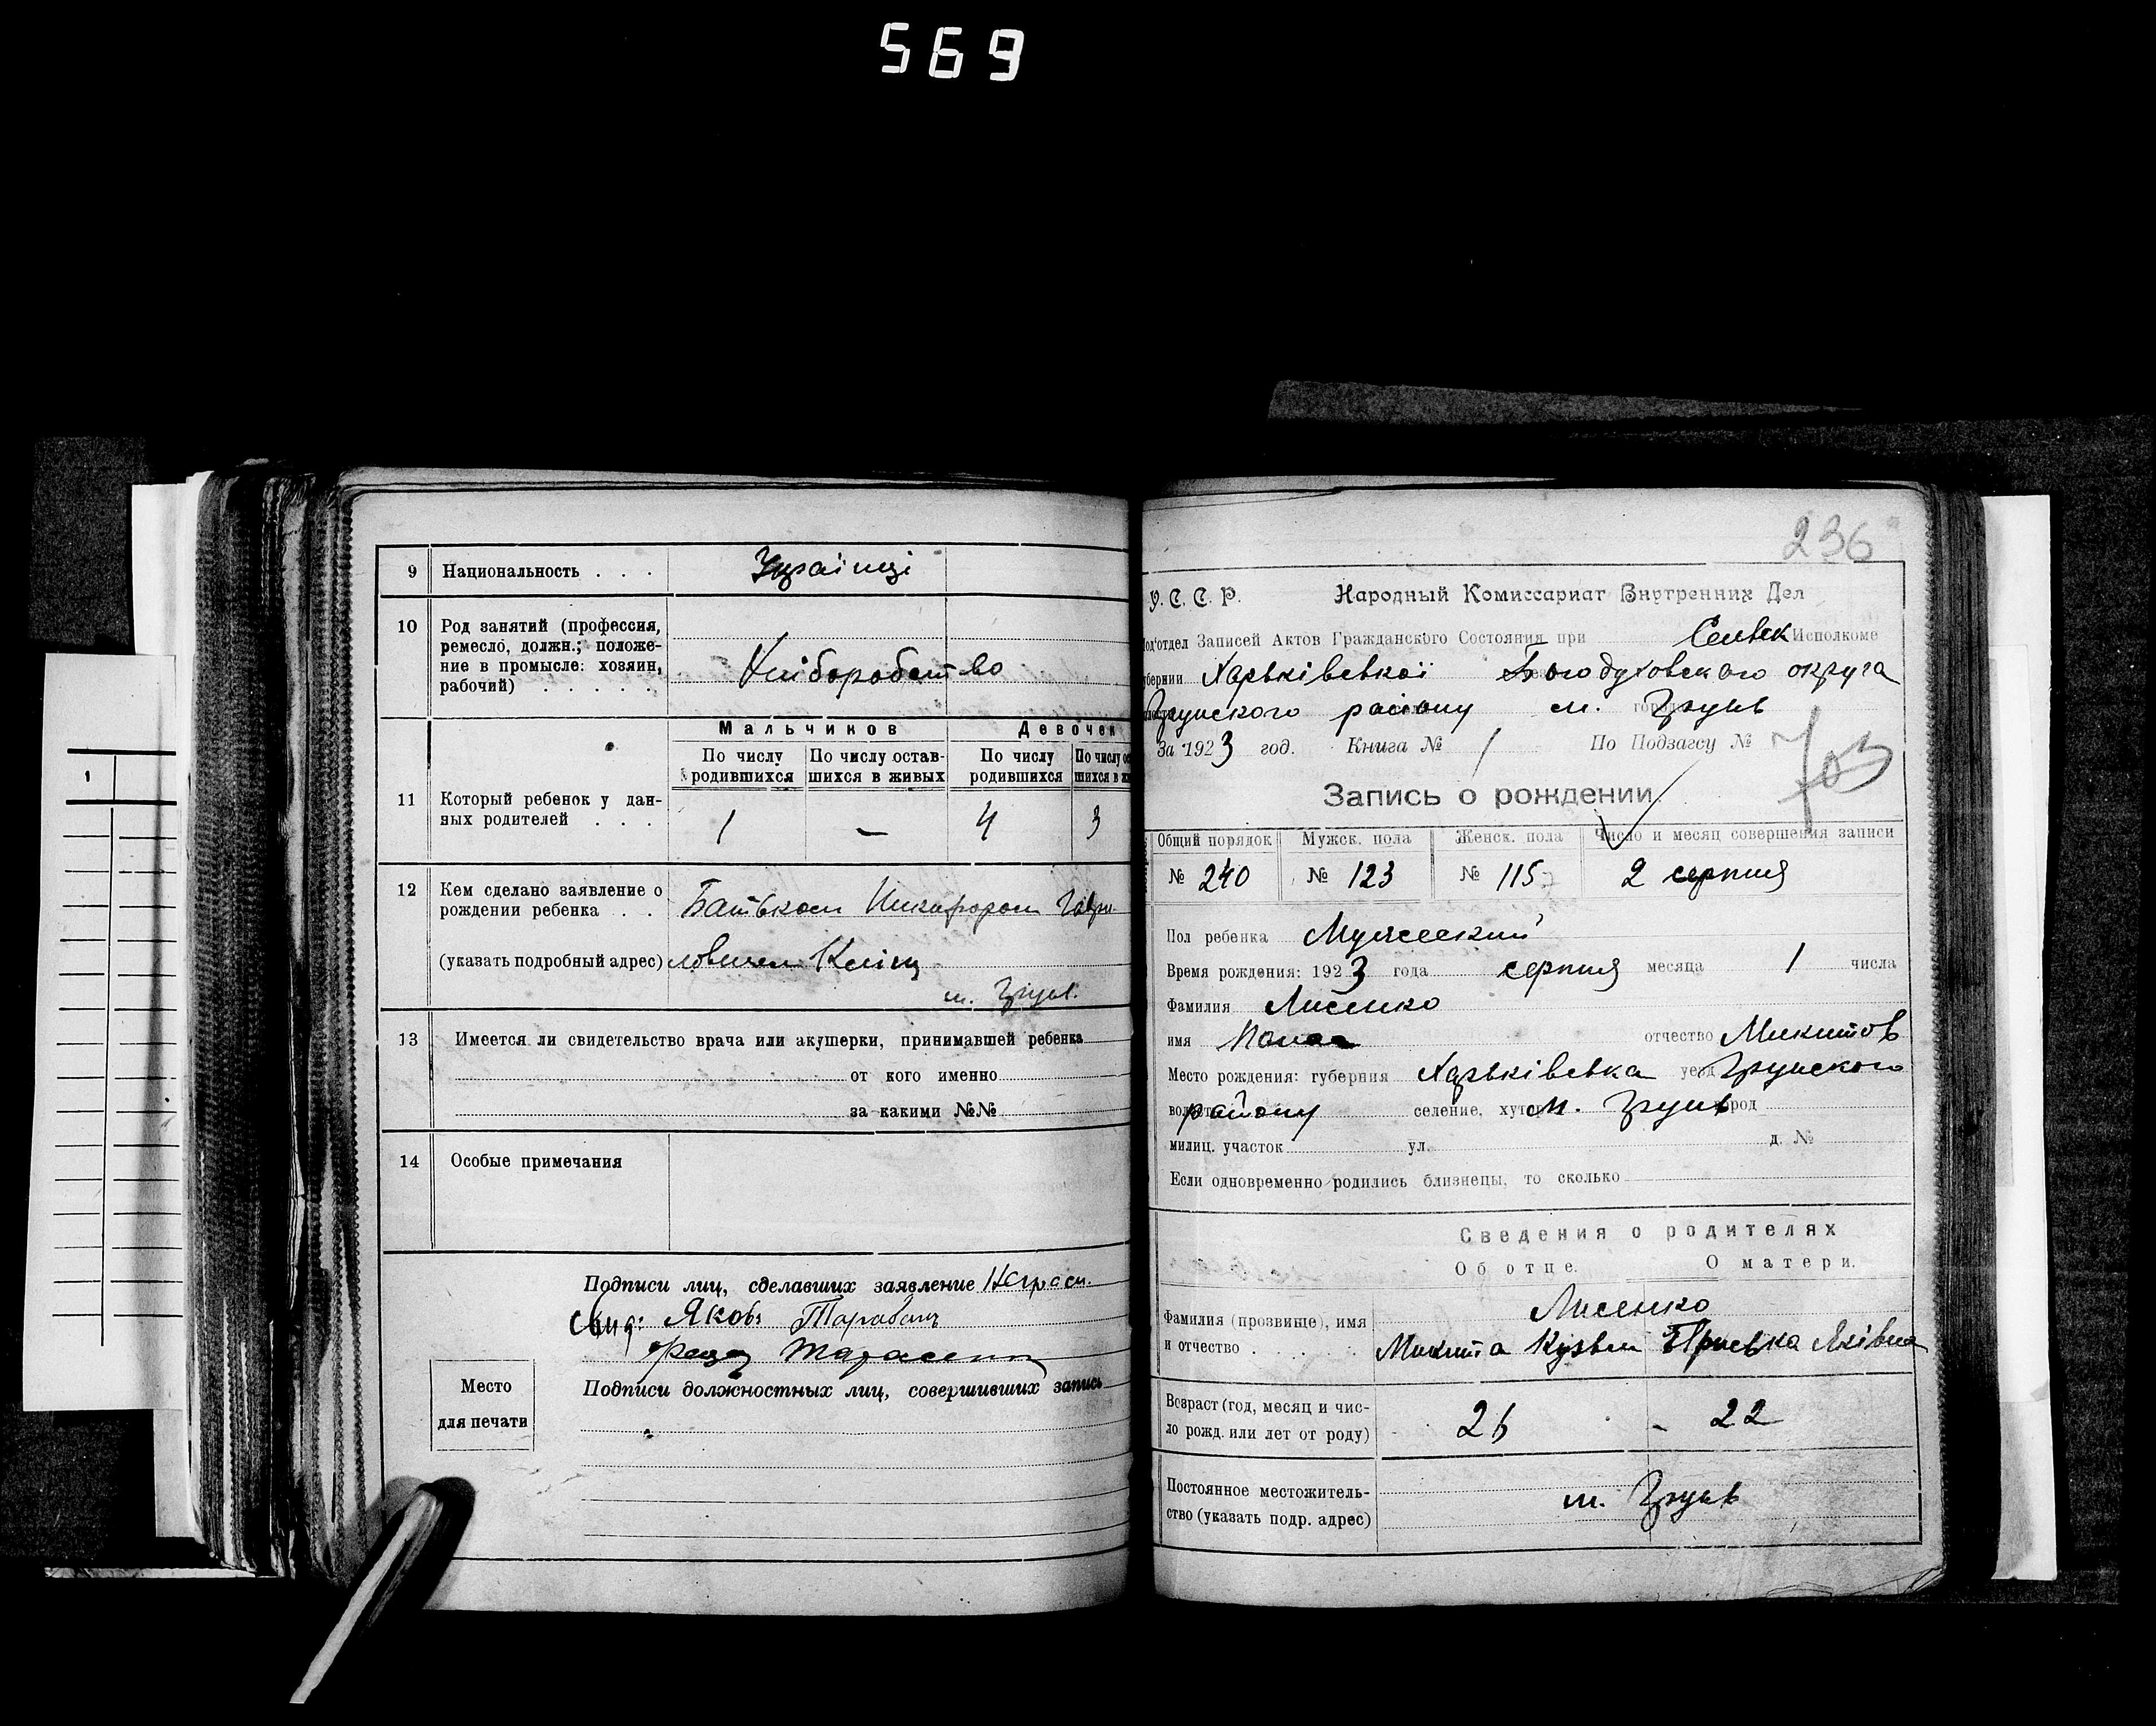 569
9 Национальность . . . Українці
10 Род занятий (профессия,
ремесло, должн.; положе-
ние в промысле: хозяин,
рабочий) . . . . . . Хліборобство
Мальчиков Девочек
По числу родившихся По числу остав-шихся в живых По числу родившихся По числу
11 Который ребенок у дан-
ных родителей . . . 1 — 4 3
12 Кем сделано заявление о
рождении ребенка . . Батьком Никифором Гаври-
(указать подробный адрес) ловичем
м. Грунь.
13 Имеется ли свидетельство врача или акушерки, принимавшей ребенка
от кого именно
за какими №№
14 Особые примечания
Подписи лиц, сделавших заявление
Яковъ
Тарасенко
Место
для печати
Подписи должностных лиц, совершивших запись
236
У. С. С. Р. Народный Комиссариат Внутренних Дел
Под'отдел Записей Актов Гражданского Состояния при Исполкоме
губернии Харьківської Богодуховского округа
Грунского району м. Грунь
За 1923 год. Книга № 1 По Подзагсу № 703
Запись о рождении.
Общий порядок Мужск. пола Женск. пола Число и месяц совершения записи
№ 240 № 123 № 115 2 серпня
Пол ребенка Мужеский
Время рождения: 1923 года серпня месяца 1 числа
Фамилия Лисенко
имя отчество Микитов
Место рождения: губерния Харьківська уезд Грунского
району селение, хутор м. Грунь город
милиц. участок ул. д. №
Если одновременно родились близнецы, то сколько
Сведения о родителях
Об отце. О матери.
Лисенко
Фамилия (прозвище), имя
и отчество . . . . Микита Кузьм Приська Яківна
Возраст (год, месяц и чис-
ло рожд. или лет от роду) 26 22
Постоянное местожитель-
ство (указать подр. адрес) м. Грунь